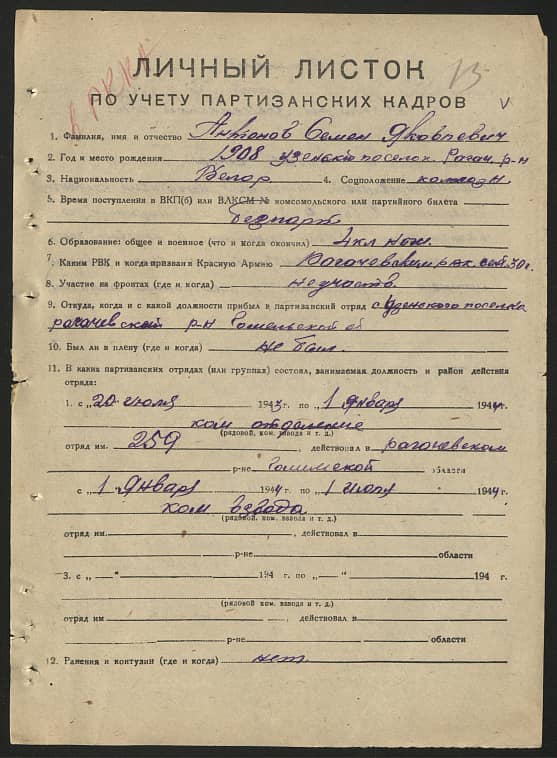 в РККА
15
ЛИЧНЫЙ ЛИСТОК
ПО УЧЕТУ ПАРТИЗАНСКИХ КАДРОВ
1. Фамилия, имя и отчество Антонов Семен Яковлевич
2. Год и место рождения 1908 узенский поселок Рагач. р-н
3. Национальность Белор 4. Соцположение колхозн.
5. Время поступления в ВКП(б) или ВЛКСМ № комсомольского или партийного билета
безпарт.
6. Образование: общее и военное (что и когда окончил) 4 кл
7. Каким РВК и когда призван в Красную Армию Рагачевским рвк сен. 30 г.
8. Участие на фронтах (где и когда) не участв
9. Откуда, когда и с какой должности прибыл в партизанский отряд с Узенского поселка
рагачевской р-н Гомельской об
10. Был ли в плену (где и когда) не был.
11. В каких партизанских отрядах (или группах) состоял, занимаемая должность и район действия
отряда:
1. с „20 июля 1943 г. по „1 января 1944 г.
ком отделение
(рядовой, ком. взвода и т. д.)
отряд им. 259, действовал в рагачевском
р-не Гомельской области
с „1 января 1944 г по „1 июля 1944 г.
ком взвода
(рядовой, ком. взвода и т. д.)
отряд им., действовал в
р-не области
3. с „ — “ 194 г. по „ — “ 194 г.
(рядовой ком. взвода и т. д.)
отряд им, действовал в
р-не области
12. Ранения и контузии (где и когда) нет